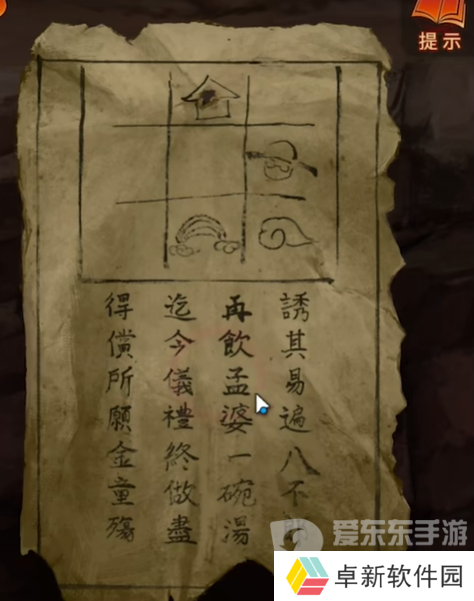 提示
誘其易遍八不
再飲孟婆一碗湯
迄今儀禮終做盡
得償所願金童殤
爱东东手游
卓新软件园